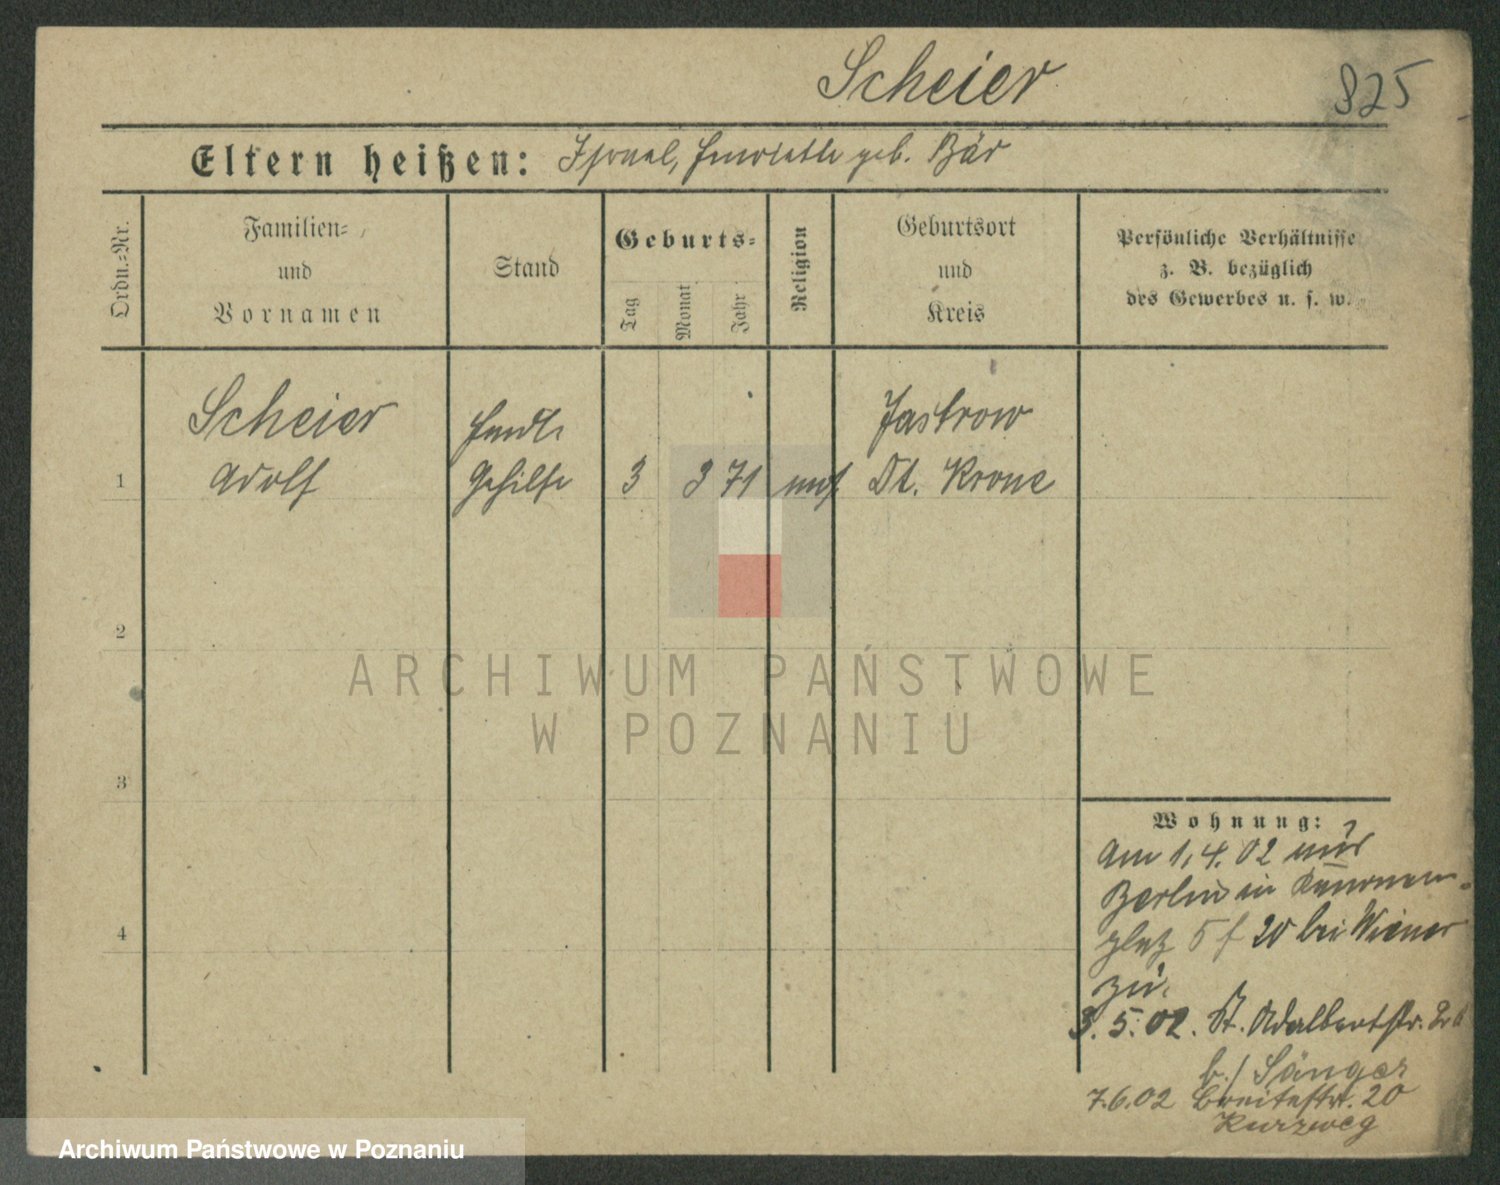 Scheier
825
Eltern heißen: Israel, Henriette geb. Bär
Ordn.-Nr.
Familien-
und
Vornamen
Stand
Geburts-
Tag
Monat
Jahr
Religion
Geburtsort
und
Kreis
Persönliche Verhältnisse
z. B. bezüglich
des Gewerbes u. s. w.
1
Scheier
Adolf
Handl.
Gehilfe
3
3
71
mos.
Jastrow
Dt. Krone
2
3
4
Wohnung:
Am 1.4.02 aus
Berlin in
platz 5 f 20 bei Wiener
zu.
3.5.02. St. Adalbertstr.
b./ Sänger
7.6.02 Breitestr. 20
Kurzweg
ARCHIWUM PAŃSTWOWE
W POZNANIU
Archiwum Państwowe w Poznaniu